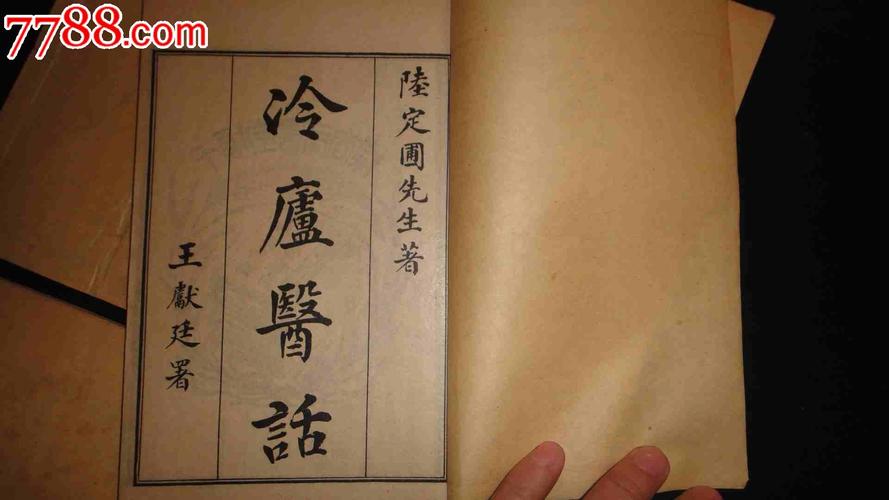 7788.com
陸定圃先生著
冷廬醫話
王獻廷署